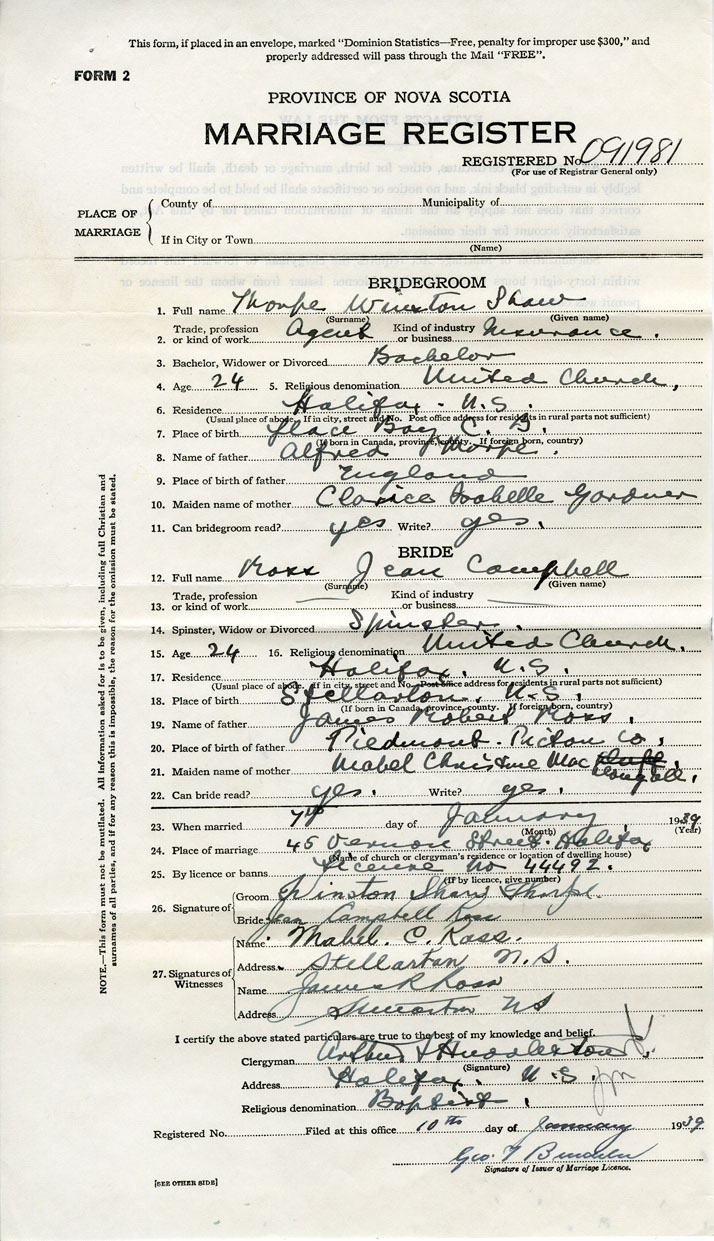 This form, if placed in an envelope, marked "Dominion Statistics—Free, penalty for improper use $300," and
properly addressed will pass through the Mail "FREE".
FORM 2
PROVINCE OF NOVA SCOTIA
MARRIAGE REGISTER
REGISTERED No. 091981
(For use of Registrar General only)
PLACE OF MARRIAGE
County of Municipality of
If in City or Town
(Name)
BRIDEGROOM
1. Full name Thorpe Winston Shaw
(Surname) (Given name)
2. Trade, profession or kind of work Agent Kind of industry or business Insurance.
3. Bachelor, Widower or Divorced Bachelor
4. Age 24 5. Religious denomination United Church,
6. Residence Halifax. N.S.
(Usual place of abode. If in city, street and No. Post office address for residents in rural parts not sufficient)
7. Place of birth Glace Bay C. B.
(If born in Canada, province, county. If foreign born, country)
8. Name of father Alfred Thorpe.
9. Place of birth of father England
10. Maiden name of mother Clarice Isabelle Gardner
11. Can bridegroom read? yes Write? yes.
BRIDE
12. Full name Ross Jean Campbell
(Surname) (Given name)
13. Trade, profession or kind of work — Kind of industry or business —
14. Spinster, Widow or Divorced Spinster.
15. Age 24 16. Religious denomination United Church.
17. Residence Halifax. N.S.
(Usual place of abode. If in city, street and No. Post office address for residents in rural parts not sufficient)
18. Place of birth Stellarton. N.S.
(If born in Canada, province, county. If foreign born, country)
19. Name of father James Robert Ross.
20. Place of birth of father Piedmont. Pictou Co.
21. Maiden name of mother Mabel Christine Mac Dougall.
22. Can bride read? yes. Write? yes.
23. When married 7th day of January 1939
(Month) (Year)
24. Place of marriage 45 Vernon Street. Halifax
(Name of church or clergyman's residence or location of dwelling house)
25. By licence or banns Licence No 44492.
(If by licence, give number)
26. Signature of
Groom Winston Shaw Thorpe.
Bride Jean Campbell Ross
27. Signatures of Witnesses
Name Mabel. C. Ross.
Address Stellarton N.S.
Name James R Ross
Address Stellarton NS
I certify the above stated particulars are true to the best of my knowledge and belief.
Clergyman Arthur
(Signature)
Address Halifax. N.S.
Religious denomination Baptist.
Registered No. Filed at this office 10th day of January 1939
Geo. T
Signature of Issuer of Marriage Licence.
[SEE OTHER SIDE]
NOTE.—This form must not be mutilated. All information asked for is to be given, including full Christian and
surnames of all parties, and if for any reason this is impossible, the reason for the omission must be stated.